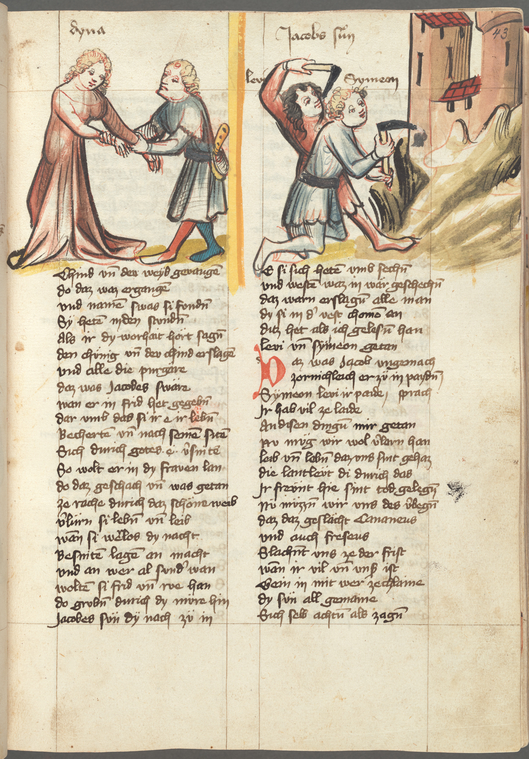 dyna
Jacobs sün
43
levi
Symeon
Chind vn der weyb gevange
do daz waz ergange
vnd name swas si fondn
Dy hetn in den stundn
Als ir dy worhat hort sagn
den chünig vn der chind erslage
vnd alle die purgäre
daz wos Jacobes swäre
wan er in frid het gegebn
dar vmb das si ir e ir lebn
Becherte vn nach seine site
Sich durich gotes e v̈snite
So wolt er in dy fraven lan
do daz geschach vn was getan
ze rache durich daz schöne weib
v̈lürn si lebn vn leib
wan si wëlos dy nacht
Besnite lagen an macht
vnd an wer al sund wan
wolte si frid vn rwe han
do grobn durich dy müre hin
Jacobes sün dy nach zü in
E si sich hete vmb sechn
vnd weste waz in wär geschechn
daz warn erslagn alle man
dy si in der vest chomen an
ditz het als ich gelesn han
levi vn Symeon getan
Daz was Jacob vngemach
zornichleich er zü in paydn
Symeon levi ir paide sprach
Ir hab vil ze laide
An disen dingn mir getan
wo müg wir wol v̈lurn han
leib vn lebn daz vns sint gehaz
die lantlevt di durich das
Ir frevnt hie sint tod gelegn
nv müzzn wir vns des v̈legn
daz daz geslächt Cananeus
vnd auch freseus
Slachent vns ze der frist
wan ir vil vn vns ist
Sein in mit wer ze chlaine
dy sün all gemaine
Sich selb achtn als zagn